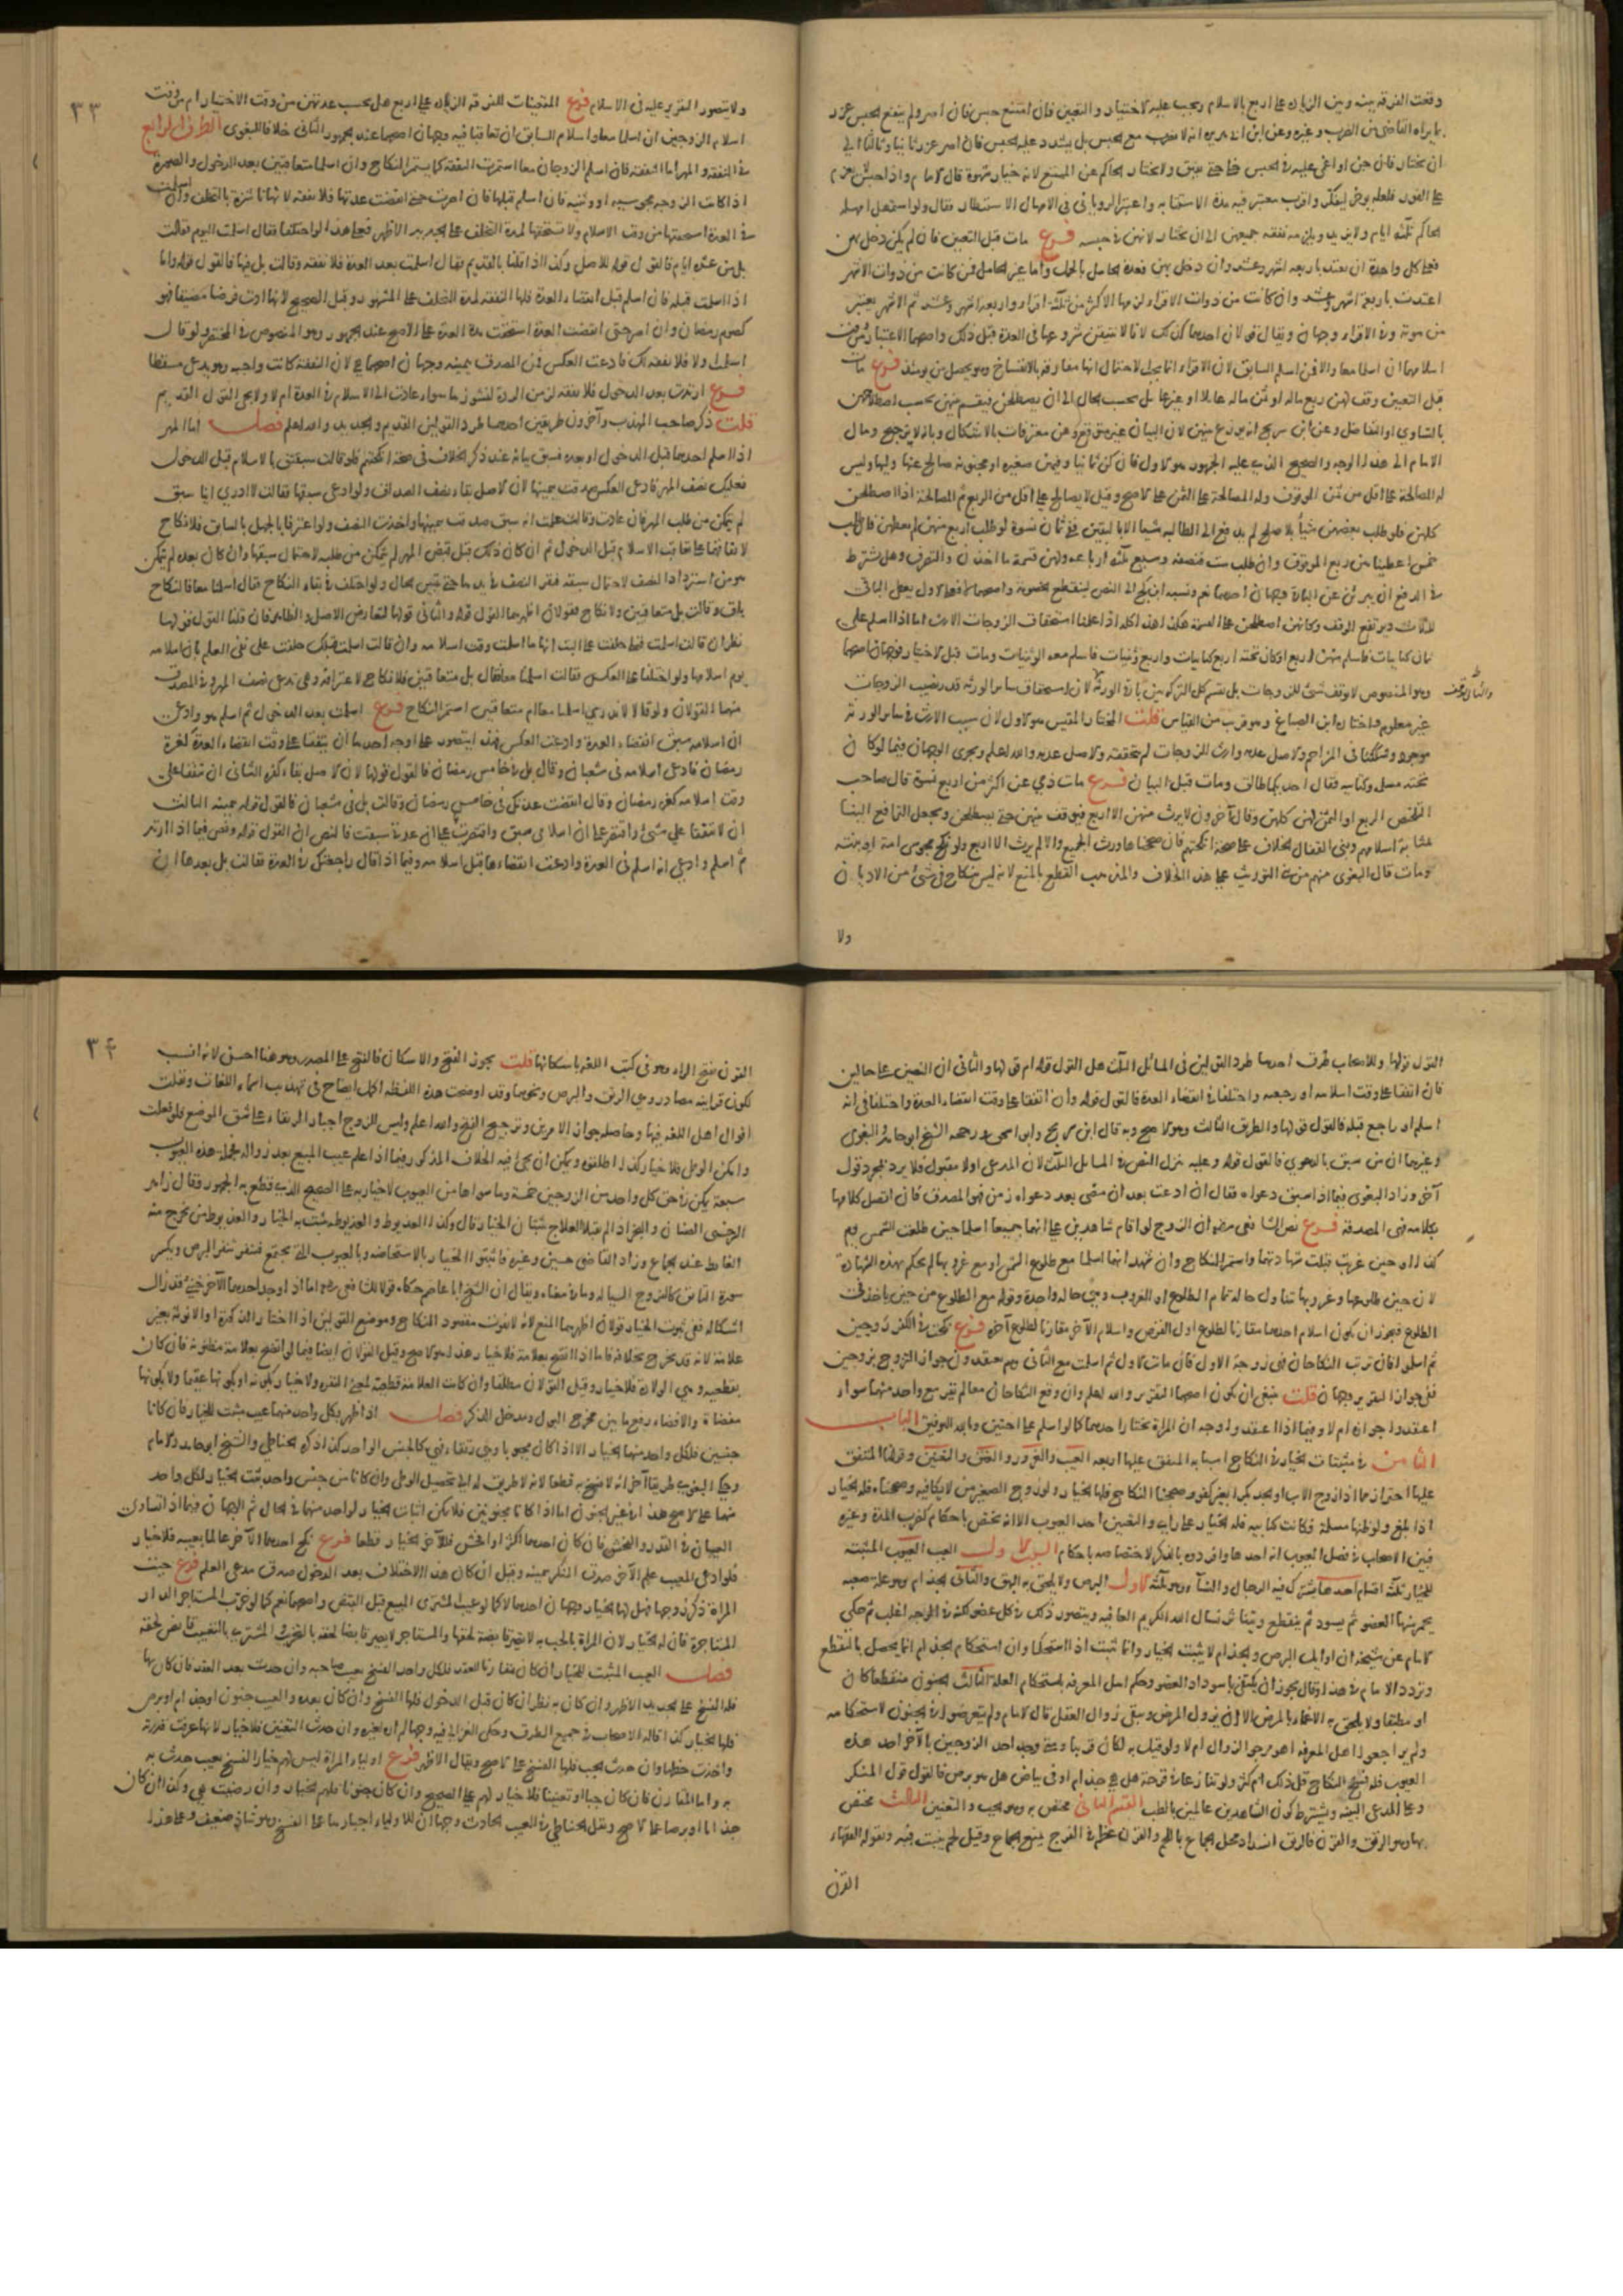 وقعت الفرقة بينه وبين الزيادة على اربع بالاسلام ويجب عليه الاختيار والتعيين فان امتنع حبس فان اصر ولم ينفع الحبس عزر
بما يراه القاضي من الضرب وغيره وعن ابن ابي هريرة انه لا يضرب مع الحبس بل يشدد عليه الحبس فان اصر عزر ثانيا وثالثا الى
ان يختار فان جن او اغمي عليه في الحبس خلي حتى يفيق ولا يختار الحاكم عن الممتنع لانه خيار شهوة قال الامام واذا حبس
على الفور فلعله يوخر ليفكر واقرب معتبر فيه مدة الاستتابه واعتبر الروياني في الامهال الاستنظار فقال ولو استمهل امهله
الحاكم ثلثة ايام ولا يزيد ويلزمه نفقة جميعهن الى ان يختار لانهن في حبسه فرع مات قبل التعيين فان لم يكن دخل بهن
فعلى كل واحدة ان تعتد باربعة اشهر وعشر وان دخل بهن فعدة الحامل بالحمل واما غير الحامل فمن كانت من ذوات الاشهر
اعتدت باربعة اشهر وعشر وان كانت من ذوات الاقراء لزمها الاكثر من ثلثة اقراء واربعة اشهر وعشر ثم الاشهر يعتبر
من موته وفي الاقراء وجهان ويقال قولان احدهما كذلك لانا لا نتيقن شروعها في العدة قبل ذلك واصحهما الاعتبار من وقت
اسلامهما ان اسلما معا والا فمن اسلام السابق لان الاقراء انما يجب لاحتمال انها مفارقة بالانفساخ وهو يحصل من يومئذ فرع مات
قبل التعيين وقف لهن ربع ماله او ثمن ماله عائلا او غيرها بل بحسب الحال الى ان يصطلحن فيقسم بينهن بحسب اصطلاحهن
بالتساوي او التفاضل وعن ابن سريج انه يوزع بينهن لان البيان غير متوقع وهن معترفات بالاشكال وبانه لا ترجيح ومال
الامام الى هذا الوجه والصحيح الذي عليه الجمهور هو الاول فان كن ثمانيا وفيهن صغيرة او مجنونة صالح عنها وليها وليس
له المصالحة على اقل من ثمن الموقوف وله المصالحة على الثمن على الاصح وقيل لا يصالح على اقل من الربع ثم المصالحة اذا اصطلحن
كلهن فلو طلب بعضهن شيئا بلا صلح لم يدفع الى الطالبة شيئا الا باليقين ففي ثمان نسوة لو طلب اربع منهن لم يعطهن فان طلب
خمس اعطينا من ربع الموقوف وان طلب ست فنصفه وسبع ثلثة ارباعه ولهن قسمة ما اخذن والتصرف وهل يشترط
في الدفع ان يبرئن عن الباقي وجهان احدهما نعم ونسبه ابن كج الى النص لينقطع الخصومة واصحهما لا فعلى الاول يعطى الباقي
للثلاث ويرتفع الوقف وكانهن اصطلحن على القسمة هكذا هذا كله اذا علمنا استحقاق الزوجات الارث اما اذا اسلم على
ثمان كتابيات فاسلم منهن اربع او كان تحته اربع كتابيات واربع وثنيات فاسلم معه الوثنيات ومات قبل الاختيار فوجهان اصحهما
وهو المنصوص لا يوقف شيء للزوجات بل نقسم كل التركة بين باقي الورثة لان استحقاق سائر الورثة قدر نصيب الزوجات
والثاني يوقف
غير معلوم واختاره ابن الصباغ وهو قريب من القياس قلت المختار المقيس هو الاول لان سبب الارث في سائر الورثة
موجود وشككنا في المزاحم والاصل عدمه وارث الزوجات لم نتحققه والاصل عدمه والله اعلم ويجري الوجهان فيما لو كان
تحته مسلمة وكتابية فقال احديكما طالق ومات قبل البيان فرع مات ذمي عن اكثر من اربع نسوة قال صاحب
التلخيص الربع او الثمن لهن كلهن وقال آخرون لا يرث منهن الا اربع فيوقف بينهن حتى يصطلحن ويجعل الترافع الينا
بمثابة اسلامهم وبنى القفال الخلاف على صحة انكحتهم فان صححناها ورث الجميع والا لم يرث الا اربع ولو نكح مجوسي امه او بنته
ومات قال البغوي منهم من بنى التوريث على هذا الخلاف والمذهب القطع بالمنع لانه ليس بنكاح في شيء من الاديان
ولا
٣٣
ولا يتصور التقرير عليه في الاسلام فرع المتعينات للفرقة الزيادة على اربع هل يحسب عدتهن من وقت الاختيار ام من وقت
اسلام الزوجين ان اسلما معا واسلام السابق ان تعاقبا فيه وجهان اصحهما عند الجمهور الثاني خلافا للبغوي الطرف الرابع
في النفقة والمهر اما النفقة فان اسلم الزوجان معا استمرت النفقة كما يستمر النكاح وان اسلما متعاقبين بعد الدخول والصورة
اذا كانت الزوجة مجوسية او وثنية فان اسلم قبلها فان اصرت حتى انقضت عدتها فلا نفقة لانها ناشزة بالتخلف وان اسلمت
في العدة استحقتها من وقت الاسلام ولا تستحقها لمدة التخلف على الجديد الاظهر فعلى هذا لو اختلفا فقال اسلمت اليوم فقالت
بل من عشرة ايام فالقول قوله للاصل وكذا اذا قلنا بالقديم فقال اسلمت بعد العدة فلا نفقة وقالت بل فيها فالقول قوله واما
اذا اسلمت قبله فان اسلم قبل انقضاء العدة فلها النفقة لمدة التخلف على المشهور وقيل الصحيح لانها ادت فرضا مضيقا فهو
كصوم رمضان وان اصر حتى انقضت العدة استحقت مدة العدة على الاصح عند الجمهور وهو المنصوص في المختصر ولو قال
اسلمت اولا فلا نفقة لك فادعت العكس فمن المصدق بيمينه وجهان اصحهما هي لان النفقة كانت واجبة وهو يدعي مسقطا
فرع ارتدت بعد الدخول فلا نفقة لزمن الردة لنشوزها سواء عادت الى الاسلام في العدة ام لا ولا يجئ القول القديم
قلت ذكر صاحب المهذب وآخرون طريقين احدهما طرد القولين القديم والجديد والله اعلم فصل اما المهر
اذا اسلم احدهما قبل الدخول او بعده فسبق بيانه عند ذكر الخلاف في صحة انكحتهم فلو قالت سبقتني بالاسلام قبل الدخول
فعليك نصف المهر فادعى العكس صدقت بيمينها لان الاصل بقاء نصف الصداق ولو ادعى سبقها فقالت لا ادري اينا سبق
لم تتمكن من طلب المهر فان عادت وقالت علمت انه سبق صدقت بيمينها واخذت النصف ولو اعترفا بالجهل بالسابق فلا نكاح
لاتفاقهما على تعاقب الاسلام قبل الدخول ثم ان كان ذلك قبل قبض المهر لم تتمكن من طلبه لاحتمال سبقها وان كان بعده لم يتمكن
هو من استرداد النصف لاحتمال سبقه فيقر النصف في يدها حتى يتبين الحال ولو اختلف في بقاء النكاح فقال اسلمنا معا فالنكاح
باق وقالت بل متعاقبين ولا نكاح فقولان اظهرهما القول قوله والثاني قولها لتعارض الاصل والظاهر فان قلنا القول قولها
نظر ان قالت اسلمت قبلي حلفت على البت انها ما اسلمت وقت اسلامه وان قالت اسلمت قبلك حلفت على نفي العلم بان اسلامه
يوم اسلامها ولو اختلفا على العكس فقالت اسلمنا معا فقال بل متعاقبين فلا نكاح لاعترافه وهي تدعي نصف المهر وفي المصدق
منهما القولان ولو قالا لا ندري اسلمنا معا ام متعاقبين استمر النكاح فرع اسلمت بعد الدخول ثم اسلم هو وادعى
ان اسلامه سبق انقضاء العدة وادعت العكس فهذا يتصور على اوجه احدها ان يتفقا على وقت انقضاء العدة كغرة
رمضان فادعى اسلامه في شعبان وقال بل في خامس رمضان فالقول قولها لان الاصل بقاء كفره الثاني ان يتفقا على
وقت اسلامه كغرة رمضان وقال انقضت عدتك في خامس رمضان وقالت بل في شعبان فالقول قوله بيمينه الثالث
ان لا يتفقا على شيء واقتصر على ان اسلامي سبق واقتصرت على ان عدتي سبقت فالنص ان القول قوله ونص فيما اذا ارتد
ثم اسلم وادعى انه اسلم في العدة وادعت انقضاءها قبل اسلامه وفيما اذا قال راجعتك في العدة فقالت بل بعدها ان
القول قولها وللاصحاب طرق احدها طرد القولين في المسائل الثلث هل القول قوله ام قولها والثاني ان النصين على حالين
فان اتفقا على وقت اسلامه او رجعته واختلفا في انقضاء العدة فالقول قوله وان اتفقا على وقت انقضاء العدة واختلفا في انه
اسلم او راجع قبله فالقول قولها والطريق الثالث وهو الاصح وبه قال ابن سريج وابو اسحق رحمه الشيخ ابو حامد والبغوي
وغيرهما ان من سبق بالدعوى فالقول قوله وعليه ينزل النص في المسائل الثلث لان المدعى اولا مقبول فلا يرد بمجرد قول
آخر وزاد البغوي فيما اذا سبق دعواه فقال ان ادعت بعد ان مضى بعد دعواه زمن فهو المصدق فان اتصل كلامها
بكلامه فهي المصدقة فرع نص الشافعي رضي ان الزوج لو اقام شاهدين على انهما جميعا اسلما حين طلعت الشمس يوم
كذا او حين غربت قبلت شهادتهما واستمر النكاح وان شهد انهما اسلما مع طلوع الشمس او مع غروبها لم يحكم بهذه الشهادة
لان حين طلوعها وغروبها تتناول حالة تمام الطلوع او الغروب وهي حالة واحدة وقوله مع الطلوع من حين ياخذ في
الطلوع فيجوز ان يكون اسلام احدهما مقارنا لطلوع اول القرص واسلام الآخر مقارنا لطلوع آخره فرع نكحت في الكفر زوجين
ثم اسلموا فان ترتب النكاحان فهي زوجة الاول فان مات الاول ثم اسلمت مع الثاني وهم يعتقدون جواز التزوج بزوجين
ففي جواز التقرير وجهان قلت ينبغي ان يكون اصحهما التقرير والله اعلم وان وقع النكاحان معا لم تقر مع واحد منهما سواء
اعتقدوا جوازه ام لا وفيما اذا اعتقدوا وجه ان المراة تختار احدهما كما لو اسلم على اختين وبالله التوفيق الباب
الثامن في مثبتات الخيار في النكاح اسبابه المتفق عليها اربعة العيب والغرور والعتق والتعنين وقولنا المتفق
عليها احترازا عما اذا زوج الاب او الجد بكرا بغير كفو وصححنا النكاح فلها الخيار ولو زوج الصغير من لا يكافيه وصححناه فله الخيار
اذا بلغ ولو ظنها مسلمة فكانت كتابية فله الخيار على راي والتعنين احد العيوب الا انه يختص باحكام كضرب المدة وغيره
فبين الاصحاب في فصل العيوب انه احدها وافردوه بالذكر لاختصاصه باحكام السبب الاول العيب العيوب المثبتة
للخيار ثلثة اقسام احدها يشترك فيه الرجال والنساء وهو ثلثة الاول البرص ولا يلحق به البهق والثاني الجذام وهو علة صعبة
يحمر منها العضو ثم يسود ثم ينقطع ويتناثر نسال الله الكريم العافية ويتصور ذلك في كل عضو لكنه في الوجه اغلب ثم حكي
الامام عن شيخه ان اوائل البرص والجذام لا يثبت الخيار وانما يثبت اذا استحكما وان استحكام الجذام انما يحصل بالتقطع
وتردد الامام في هذا وقال يجوز ان يكتفى باسوداد العضو وحكم اهل المعرفة باستحكام العلة الثالث الجنون منقطعا كان
او مطبقا ولا يلحق به الاغماء بالمرض الا ان يزول المرض ويبقى زوال العقل قال الامام ولم يتعرضوا في الجنون لاستحكامه
ولم يراجعوا اهل المعرفة اهو مرجو الزوال ام لا ولو قيل به لكان قريبا ومتى وجد احد الزوجين بالآخر احد هذه
العيوب فله فسخ النكاح قل ذلك ام كثر ولو تنازعا في قرحة هل هي جذام او في بياض هل هو برص فالقول قول المنكر
وعلى المدعي البينة ويشترط كون الشاهدين عالمين بالطب القسم الثاني مختص به وهو الجب والتعنين الثالث مختص
بها وهو الرتق والقرن فالرتق انسداد محل الجماع باللحم والقرن عظم في الفرج يمنع الجماع وقيل لحم ينبت فيه ويقوله الفقهاء
القرن
٣٤
القرن بفتح الراء وهو في كتب اللغة باسكانها قلت يجوز الفتح والاسكان فالفتح على المصدر وهو هنا احسن لانه انسب
لكون قرائنه مصادر وهي الرتق والبرص ونحوهما وقد اوضحت هذه اللفظة اكمل ايضاح في تهذيب اسماء اللغات ونقلت
اقوال اهل اللغة فيها وحاصله جواز الامرين وترجيح الفتح والله اعلم وليس للزوج اجبار الرتقاء على شق الموضع فلو فعلت
وامكن الوطي فلا خيار كذا اطلقوه ويمكن ان يجئ فيه الخلاف المذكور فيما اذا علم عيب المبيع بعد زواله فجملة هذه العيوب
سبعة يمكن في حق كل واحد من الزوجين خمسة وما سواها من العيوب لا خيار به على الصحيح الذي قطع به الجمهور وقال زاهر
السرخسي الصنان والبخر اذا لم يقبلا العلاج يثبتان الخيار قال وكذا العذيوط والعذيوطة يثبت به الخيار والعذيوط من يخرج منه
الغائط عند الجماع وزاد القاضي حسين وغيره فاثبتوا الخيار بالاستحاضة وبالعيوب التي تجتمع فتنفر تنفير البرص ويكسر
سورة التائق كالقروح السيالة وما في معناه ويقال ان الشيخ ابا عاصم حكاه قولا للشافعي رضي اما اذا وجد احدهما الآخر خنثى قد زال
اشكاله ففي ثبوت الخيار قولان اظهرهما المنع لانه لا يفوت مقصود النكاح وموضع القولين اذا اختار الذكورة او الانوثة بغير
علامة لانه قد يخرج بخلافه فاما اذا اتضح بعلامة فلا خيار هذا هو الاصح وقيل القولان ايضا فيما لو اتضح بعلامة مظنونة فان كان
بقطعية وهي الولادة فلا خيار وقيل القولان مطلقا وان كانت العلامة قطعية لمعنى النفرة ولا خيار بكونه او بكونها عقيما ولا بكونها
مفضاة والافضاء رفع ما بين مخرج البول ومدخل الذكر فصل اذا ظهر بكل واحد منهما عيب مثبت للخيار فان كانا
جنسين فلكل واحد منهما الخيار الا اذا كان مجبوبا وهي رتقاء فهي كالجنس الواحد كذا ذكره الحناطي والشيخ ابو حامد والامام
وحكى البغوي طريقا آخر انه لا فسخ به قطعا لانه لا طريق له الى تحصيل الوطي وان كانا من جنس واحد ثبت الخيار لكل واحد
منهما على الاصح هذا في غير الجنون اما اذا كانا مجنونين فلا يمكن اثبات الخيار لواحد منهما في الحال ثم الوجهان فيما اذا تساوى
العيبان في القدر والفحش فان كان احدهما اكثر او افحش فللآخر الخيار قطعا فرع نكح احدهما الآخر عالما بعيبه فلا خيار
فلو ادعى المعيب علم الآخر صدق المنكر بيمينه وقيل ان كان هذا الاختلاف بعد الدخول صدق مدعي العلم فرع جبت
المراة ذكر زوجها فهل لها الخيار وجهان احدهما لا كما لو عيب المشتري المبيع قبل القبض واصحهما نعم كما لو خرب المستاجر الدار
المستاجرة فان له الخيار لان المراة بالجب لا تصير قابضة لحقها والمستاجر لا يصير قابضا لحقه بالتخريب والمشتري بالتعييب قابض لحقه
فصل العيب المثبت للخيار ان كان مقارنا للعقد فلكل واحد الفسخ بعيب صاحبه وان حدث بعد العقد فان كان بها
فله الفسخ على الجديد الاظهر وان كان به نظر ان كان قبل الدخول فلها الفسخ وان كان بعده والعيب جنون او جذام او برص
فلها الخيار كذا قاله الاصحاب في جميع الطرق وحكى الغزالي فيه وجها لم اره لغيره وان حدث التعنين فلا خيار لانها عرفت قدرته
واخذت حظها وان حدث الجب فلها الفسخ على الاصح ويقال الاظهر فرع اولياء المراة ليس لهم خيار الفسخ بعيب حدث به
واما المقارن فان كان جبا او تعنينا فلا خيار لهم على الصحيح وان كان جنونا فلهم الخيار وان رضيت هي وكذا ان كان
جذاما او برصا على الاصح ونقل الحناطي في العيب الحادث وجها ان للاولياء اجبارها على الفسخ وهو شاذ ضعيف وعلى هذا